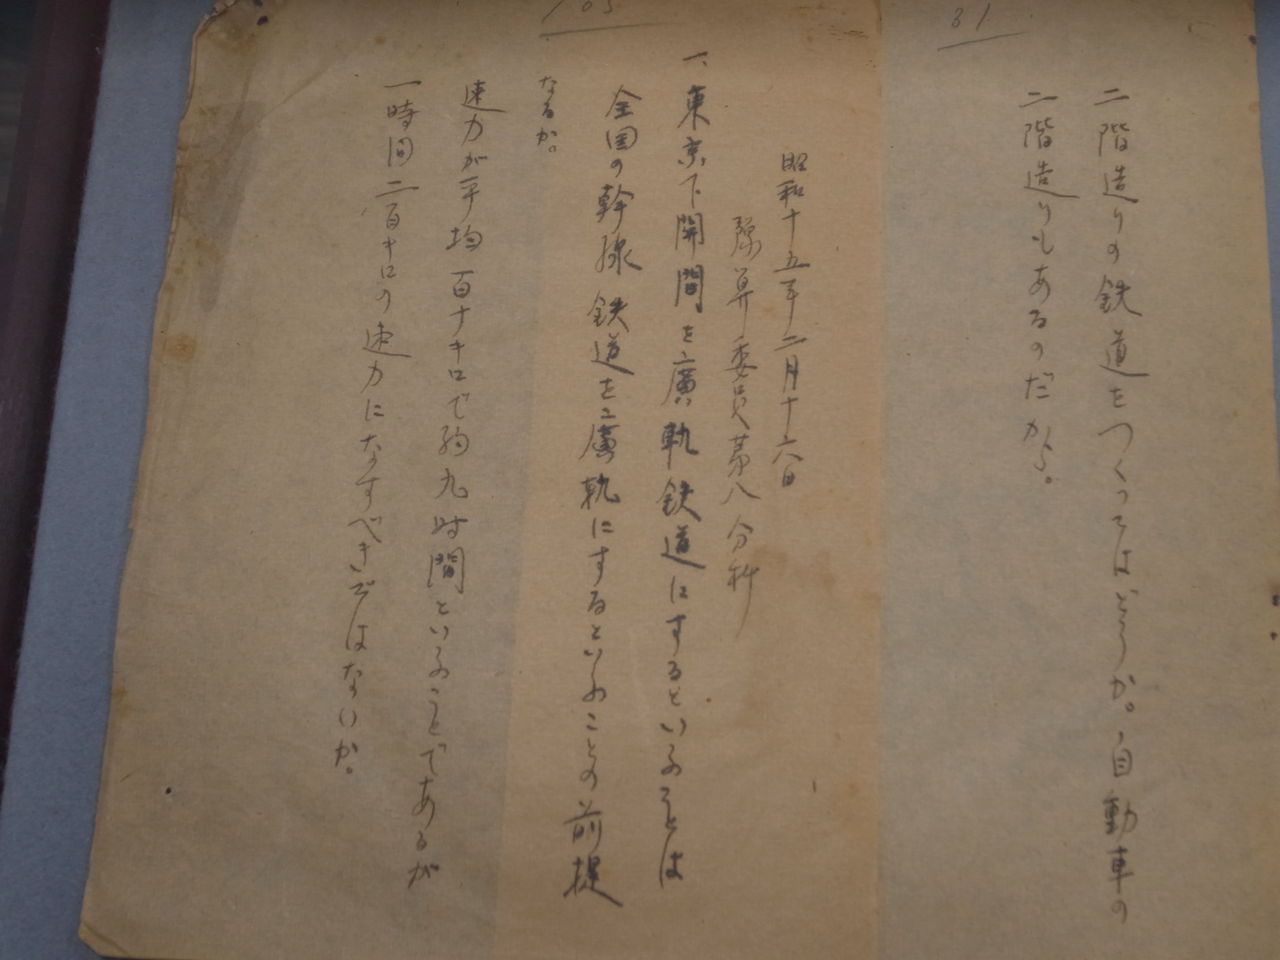 31
二階造りの鉄道をつくってはどうか。自動車の
二階造りもあるのだから。
105
昭和十五年二月十六日
豫算委員第八分科
一、東京下関間を廣軌鉄道にするといふことは
全国の幹線鉄道を廣軌にするといふことの前提
なるか。
速力が平均百十キロで約九時間といふことであるが
一時間二百キロの速力になすべきではないか。